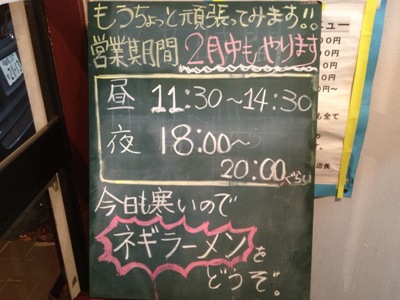 もうちょっと頑張ってみます!!
営業期間 2月中もやります
昼 11:30~14:30
夜 18:00~
20:00ぐらい
今日も寒いので
ネギラーメンを
どうぞ。
ニュー
00円
00円
00円
00円
00円~
も全て
店長